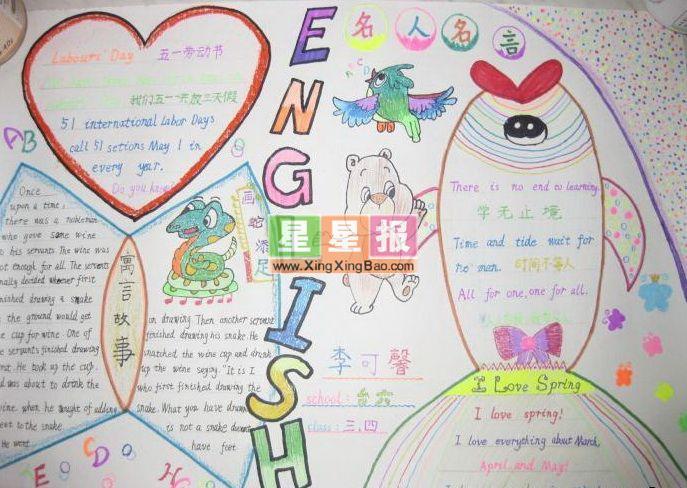 ENGLISH
Labours' Day 五一劳动节
我们五一共放三天假
51 international Labor Days
call 51 setions May 1 in
every year.
Do you know
AB
名人名言
ABCD
There is no end to learning.
学无止境
Time and tide wait for
no man. 时间不等人
All for one, one for all.
画蛇添足
寓言故事
Once
upon a time,
there was a nobleman
who gave some wine
to his servants. The wine was
not enough for all. The servants
finally decided whoever first
finished drawing a snake
on the ground would get
the cup for wine. One of
the servants finished drawing
first. He took up the cup
and was about to drink the
wine when he thought of adding
feet to the snake.
He went
on drawing. Then another servant
finished drawing his snake. He
snatched the wine cup and drank
up the wine saying. "It is I
who first finished drawing the
snake. What you have drawn
is not a snake
have feet
星星报
www.XingXingBao.com
李可馨
school:
class: 三.四
I Love Spring
I love spring!
I love everything about March,
April, and May!